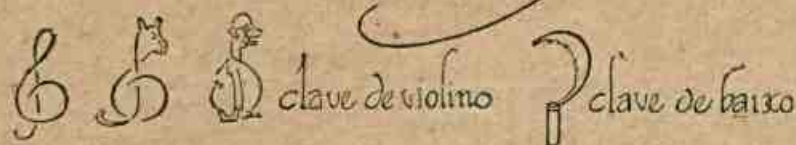 clave de violino clave de baixo